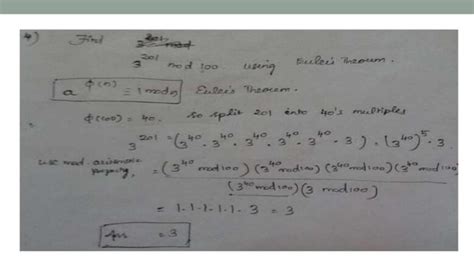 4) Find
3^201 mod 100 using Euler's Theorem.
a^φ(n) ≡ 1 mod n Euler's Theorem.
φ(100) = 40. so split 201 into 40's multiples
3^201 = (3^40 · 3^40 · 3^40 · 3^40 · 3^40 · 3) · (3^40)^5 · 3
use mod
property, = (3^40 mod 100) (3^40 mod 100) (3^40 mod 100) (3^40 mod 100)
(3^40 mod 100) (3 mod 100)
= 1·1·1·1·1· 3 = 3
Ans = 3